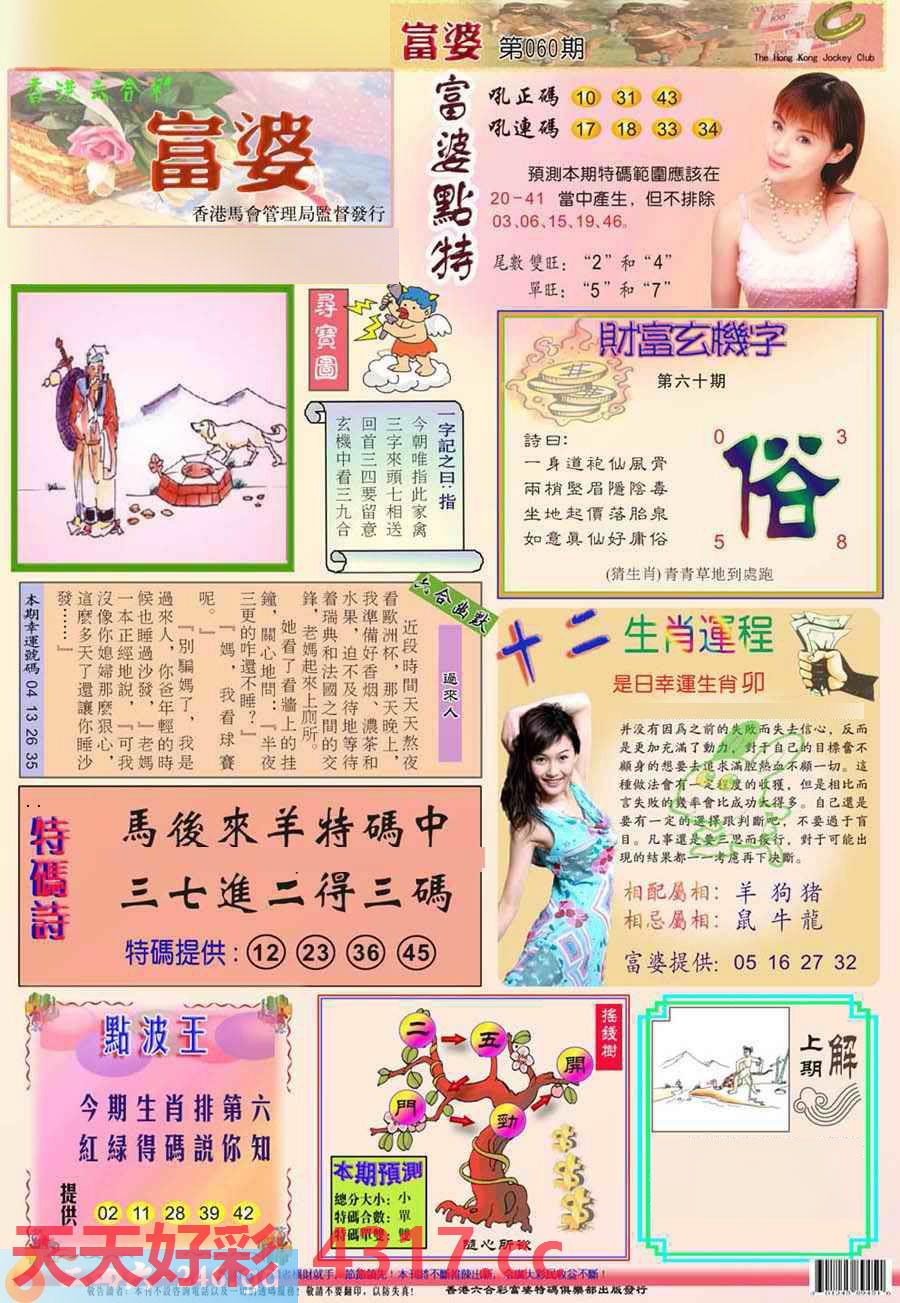 富婆 第060期
The Hong Kong Jockey Club
香港六合彩
富婆
香港馬會管理局監督發行
富婆點特
吼正碼 10 31 43
吼連碼 17 18 33 34
預測本期特碼範圍應該在
20-41 當中產生，但不排除
03、06、15、19、46。
尾數雙旺：“2”和“4”
單旺：“5”和“7”
尋寶圖
一字記之曰：指
今朝唯指此家禽
三字來頭七相送
回首三四要留意
玄機中看三九合
財富玄機字
第六十期
詩曰：
一身道袍仙風骨
兩梢堅眉隱陰毒
坐地起價落胎泉
如意真仙好庸俗
0 3
俗
5 8
(猜生肖)青青草地到處跑
本期幸運號碼 04 13 26 35
六合幽默
過來人
近段時間天天熬夜
看歐洲杯，那天晚上，
我準備好香烟、濃茶和
水果，迫不及待地等待
着瑞典和法國之間的交
鋒，老媽起來上厠所。
她看了看牆上的挂
鐘，關心地問：『半夜
三更的咋還不睡？』
『媽，我看球賽
呢。』
『別騙媽了，我是
過來人，你爸年輕的時
候也睡過沙發，』老媽
一本正經地說，『可我
沒像你媳婦那麼狠心，
這麼多天了還讓你睡沙
發……』
十二生肖運程
是日幸運生肖 卯
并没有因爲之前的失敗而失去信心，反而
是更加充滿了動力，對于自己的目標奮不
顧身的想要去追求滿腔熱血不顧一切。這
種做法會有一定程度的收獲，但是相比而
言失敗的幾率會比成功大得多。自己還是
要有一定的選擇跟判斷吧，不要過于盲
目。凡事還是要三思而後行，對于可能出
現的結果都一一考慮再下决斷。
相配屬相：羊 狗 猪
相忌屬相：鼠 牛 龍
富婆提供：05 16 27 32
特碼詩
馬後來羊特碼中
三七進二得三碼
特碼提供：12 23 36 45
點波王
今期生肖排第六
紅緑得碼説你知
提供 02 11 28 39 42
搖錢樹
二 五 開
門 勁
本期預測
總分大小：小
特碼合數：單
特碼單雙：雙
隨心所欲
上期解
天天好彩 4317.cc
橫財就手，節節領先！本刊將不斷推陳出新，令廣大彩民收益不斷！
敬告讀者：本刊不設咨詢電話以及一切的透碼服務！敬請不要翻印，以防失真！
香港六合彩富婆特碼俱樂部出版發行